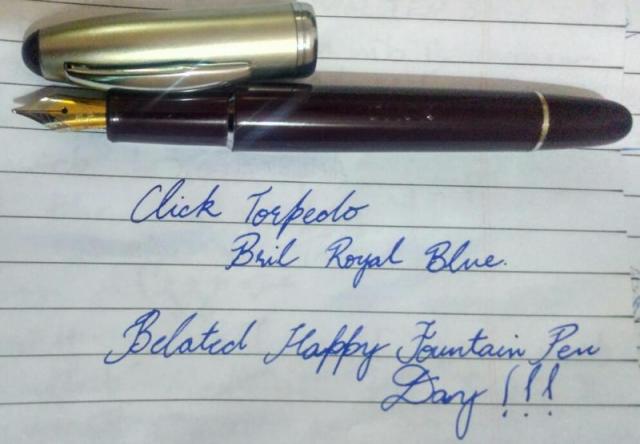 Click Torpedo
Bril Royal Blue.
Belated Happy Fountain Pen
Day !!!